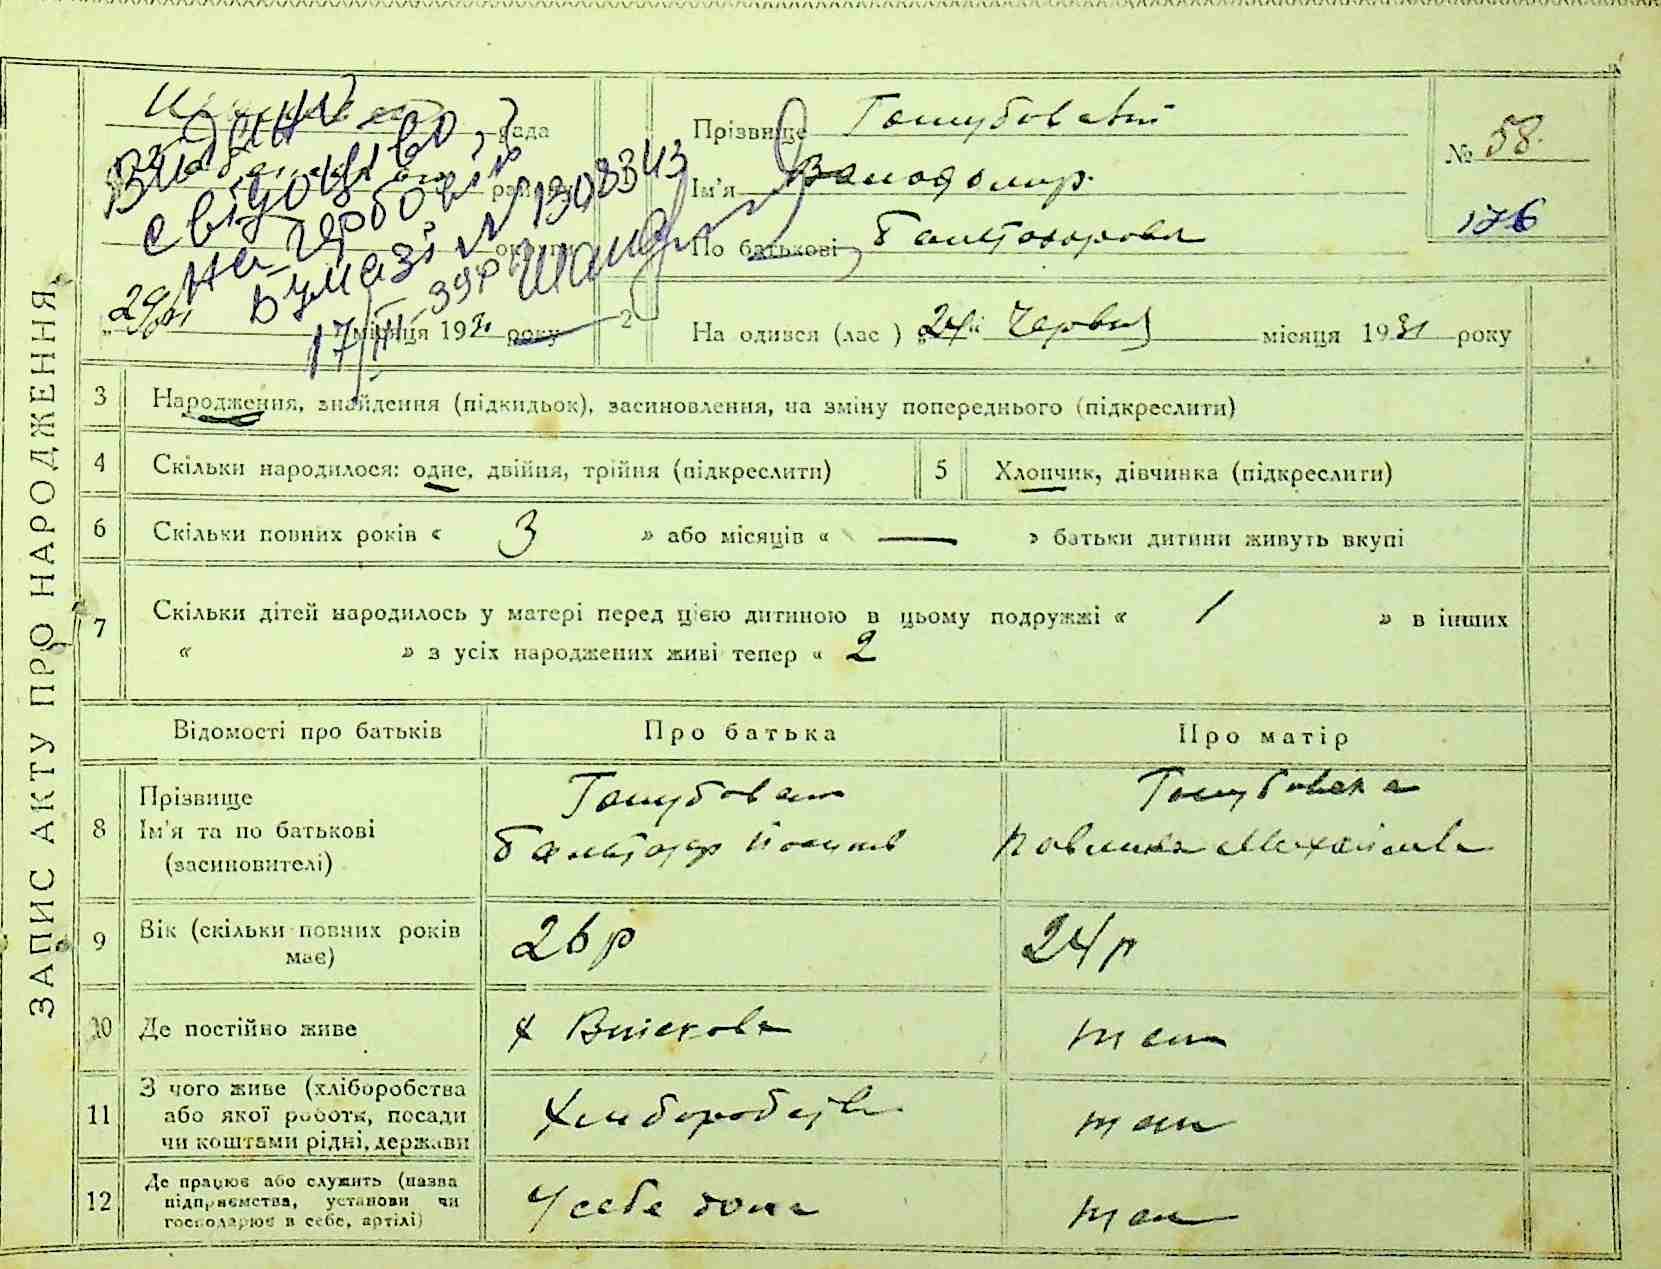 ЗАПИС АКТУ ПРО НАРОДЖЕННЯ
рада
району
округи
місяця 1931 року
Видано
свідоцтво
на гербовій
бумазі № 1308343
17/III-39р
2
Прізвище Голубовський
Ім'я Володомир
По батькові Балтазорови
№ 58.
176
На одився (лас ) 24 Червня місяця 1931 року
3 Народження, знайдення (підкидьок), засиновлення, на зміну попереднього (підкреслити)
4 Скільки народилося: одне, двійня, трійня (підкреслити)
5 Хлопчик, дівчинка (підкреслити)
6 Скільки повних років « 3 » або місяців « — » батьки дитини живуть вкупі
7 Скільки дітей народилось у матері перед цією дитиною в цьому подружжі « 1 » в інших
« » з усіх народжених живі тепер « 2
Відомості про батьків Про батька Про матір
8 Прізвище
Ім'я та по батькові
(засиновителі)
Голубовськ
Балтазар Йосипів
Голубовська
Павлина Михайлівн
9 Вік (скільки повних років має) 26р 24р
10 Де постійно живе х там
11 З чого живе (хліборобства або якої роботи, посади чи коштами рідні, держави Хліборобств там
12 Де працює або служить (назва підприємства, установи чи господарює в себе, артілі) У себе дома там